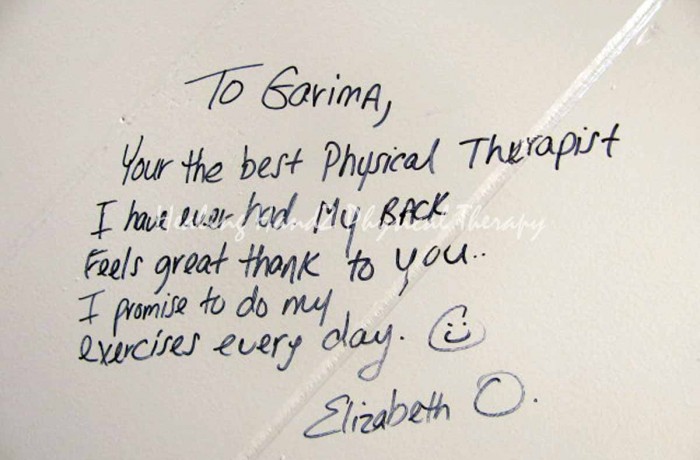 To Garima,
Your the best Physical Therapist
I have ever had My BACK
Feels great thank to you..
I promise to do my
exercises every day.
Elizabeth O.
Healing Handz Physical Therapy